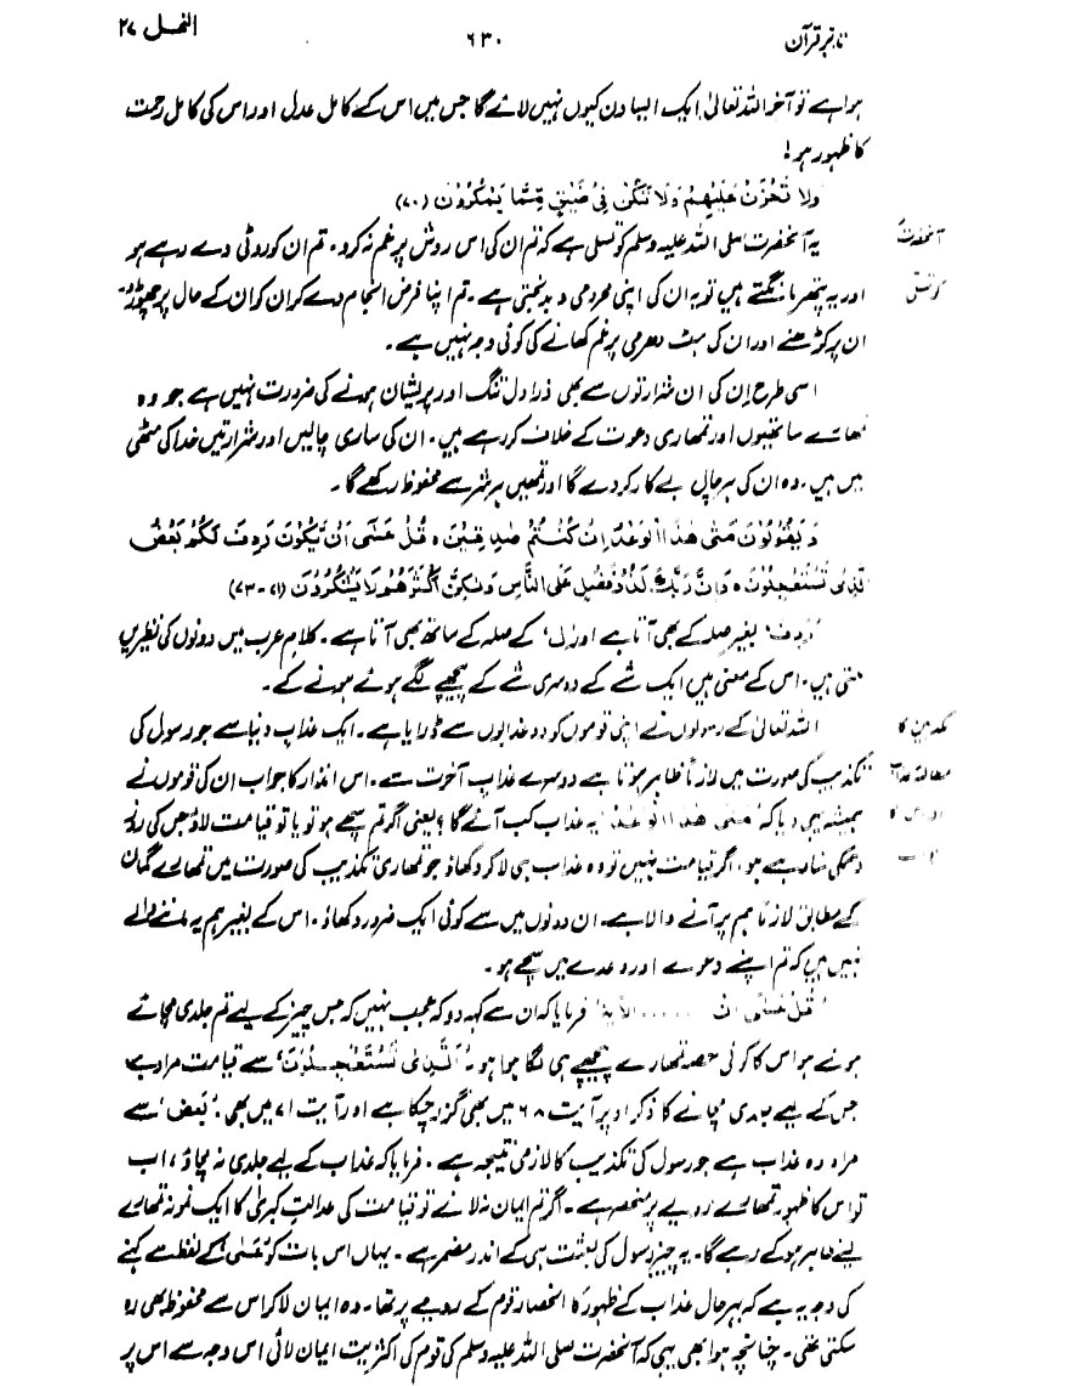 تدبر قرآن ۶۳۰ النمل ۲۷
ہوا ہے تو آخر اللہ تعالیٰ ایک ایسا دن کیوں نہیں لائے گا جس میں اس کے کامل عدل اور اس کی کامل رحمت
کا ظہور ہو!
وَلَا تَحْزَنْ عَلَيْهِمْ وَلَا تَكُنْ فِيْ ضَيْقٍ مِّمَّا يَمْكُرُوْنَ (۷۰)
آنحضرتؐ
یہ آنحضرت صلی اللہ علیہ وسلم کو تسلی ہے کہ تم ان کی اس روش پر غم نہ کرو۔ تم ان کو روٹی دے رہے ہو
کو تسلی
اور یہ پتھر مانگتے ہیں تو یہ ان کی اپنی محرومی و بدبختی ہے۔ تم اپنا فرض انجام دے کر ان کو ان کے حال پر چھوڑو۔
ان پر کڑھنے اور ان کی ہٹ دھرمی پر غم کھانے کی کوئی وجہ نہیں ہے۔
اسی طرح ان کی ان شرارتوں سے بھی ذرا دل تنگ اور پریشان ہونے کی ضرورت نہیں ہے جو وہ
تمھارے ساتھیوں اور تمھاری دعوت کے خلاف کر رہے ہیں۔ ان کی ساری چالیں اور شرارتیں خدا کی مٹھی
میں ہیں۔ وہ ان کی ہر چال بے کار کر دے گا اور تمھیں ہر شر سے محفوظ رکھے گا۔
وَيَقُوْلُوْنَ مَتٰى هٰذَا الْوَعْدُ اِنْ كُنْتُمْ صٰدِقِيْنَ ہ قُلْ عَسٰٓى اَنْ يَّكُوْنَ رَدِفَ لَكُمْ بَعْضُ
الَّذِىْ تَسْتَعْجِلُوْنَ ہ وَاِنَّ رَبَّكَ لَذُوْ فَضْلٍ عَلَى النَّاسِ وَلٰكِنَّ اَكْثَرَهُمْ لَا يَشْكُرُوْنَ (۷۱-۷۳)
’رَدِفَ‘ بغیر صلہ کے بھی آتا ہے اور ’ل‘ کے صلہ کے ساتھ بھی آتا ہے۔ کلامِ عرب میں دونوں کی نظیریں
ملتی ہیں۔ اس کے معنی ہیں ایک شے کے دوسری شے کے پیچھے لگے ہوئے ہونے کے۔
مکذبین کا
اللہ تعالیٰ کے رسولوں نے اپنی قوموں کو دو عذابوں سے ڈرایا ہے۔ ایک عذابِ دنیا سے جو رسول کی
مطالبۂ عذاب
تکذیب کی صورت میں لازماً ظاہر ہوتا ہے دوسرے عذابِ آخرت سے۔ اس انذار کا جواب ان کی قوموں نے
اور اس کا
ہمیشہ یہی دیا کہ ’مَتٰى هٰذَا الْوَعْدُ‘ یہ عذاب کب آئے گا؟ یعنی اگر تم سچے ہو تو یا تو قیامت لاؤ جس کی روز
جواب
دھمکی سنا رہے ہو، اگر قیامت نہیں تو وہ عذاب ہی لا کر دکھاؤ جو تمھاری تکذیب کی صورت میں تمھارے گمان
کے مطابق لازماً ہم پر آنے والا ہے۔ ان دونوں میں سے کوئی ایک ضرور دکھاؤ۔ اس کے بغیر ہم یہ ماننے والے
نہیں ہیں کہ تم اپنے دعوے اور وعدے میں سچے ہو۔
’قُلْ عَسٰٓى اَنْ ...... الاٰیۃ‘ فرمایا کہ ان سے کہہ دو کہ عجب نہیں کہ جس چیز کے لیے تم جلدی مچائے
ہوئے ہو اس کا کوئی حصہ تمھارے پیچھے ہی لگا ہوا ہو۔ ’الَّذِىْ تَسْتَعْجِلُوْنَ‘ سے قیامت مراد ہے
جس کے لیے جلدی مچانے کا ذکر اوپر آیت ۶۸ میں بھی گزر چکا ہے اور آیت ۷۱ میں بھی۔ ’بَعض‘ سے
مراد وہ عذاب ہے جو رسول کی تکذیب کا لازمی نتیجہ ہے۔ فرمایا کہ عذاب کے لیے جلدی نہ مچاؤ، اب
تو اس کا ظہور تمھارے رویے پر منحصر ہے۔ اگر تم ایمان نہ لائے تو قیامت کی عدالتِ کبریٰ کا ایک نمونہ تمھارے
لیے ظاہر ہو کے رہے گا۔ یہ چیز رسول کی بعثت ہی کے اندر مضمر ہے۔ یہاں اس بات کو ’عَسٰى‘ کے لفظ سے کہنے
کی وجہ یہ ہے کہ بہرحال عذاب کے ظہور کا انحصار قوم کے رویے پر تھا۔ وہ ایمان لا کر اس سے محفوظ بھی رہ
سکتی تھی۔ چنانچہ ہوا بھی یہی کہ آنحضرت صلی اللہ علیہ وسلم کی قوم کی اکثریت ایمان لائی اس وجہ سے اس پر